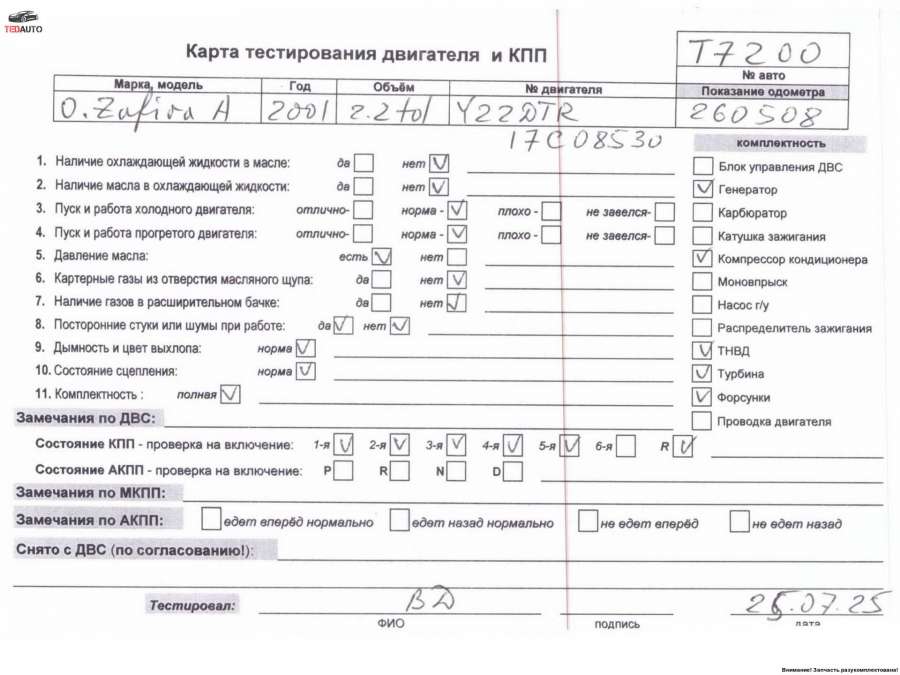 TEDAUTO
Карта тестирования двигателя и КПП
T7200
№ авто
Марка, модель Год Объём № двигателя Показание одометра
O. Zafira A 2001 2.2 tdl Y22DTR 260508
17C08530
комплектность
1. Наличие охлаждающей жидкости в масле: да нет V
Блок управления ДВС
2. Наличие масла в охлаждающей жидкости: да нет V
V Генератор
3. Пуск и работа холодного двигателя: отлично- норма - V плохо - не завелся-
Карбюратор
4. Пуск и работа прогретого двигателя: отлично- норма - V плохо - не завелся-
Катушка зажигания
5. Давление масла: есть V нет
V Компрессор кондиционера
6. Картерные газы из отверстия масляного щупа: да нет V
Моновпрыск
7. Наличие газов в расширительном бачке: да нет V
Насос г/у
8. Посторонние стуки или шумы при работе: да V нет V
Распределитель зажигания
9. Дымность и цвет выхлопа: норма V
V ТНВД
10. Состояние сцепления: норма V
V Турбина
11. Комплектность : полная V
V Форсунки
Замечания по ДВС:
Проводка двигателя
Состояние КПП - проверка на включение: 1-я V 2-я V 3-я V 4-я V 5-я V 6-я R V
Состояние АКПП - проверка на включение: P R N D
Замечания по МКПП:
Замечания по АКПП: едет вперёд нормально едет назад нормально не едет вперёд не едет назад
Снято с ДВС (по согласованию!):
Тестировал: ВД 25.07.25
ФИО подпись дата
Внимание! Запчасть разукомплектована!